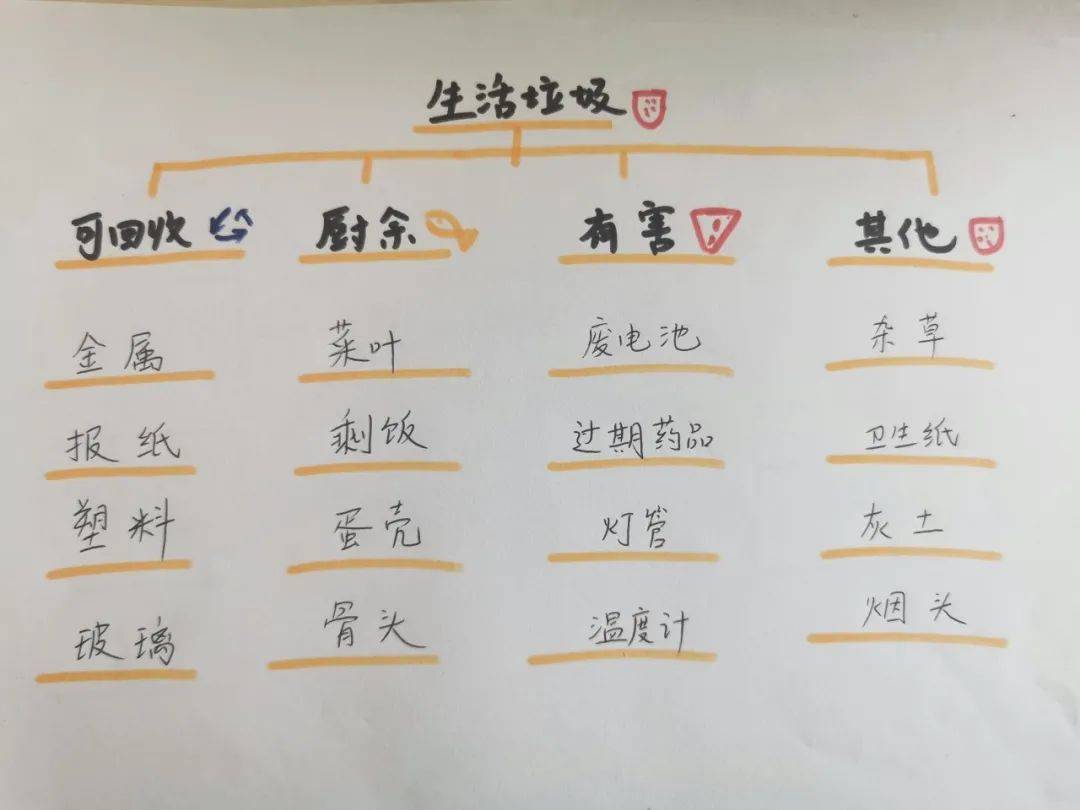 生活垃圾
可回收 厨余 有害 其他
金属 菜叶 废电池 杂草
报纸 剩饭 过期药品 卫生纸
塑料 蛋壳 灯管 灰土
玻璃 骨头 温度计 烟头